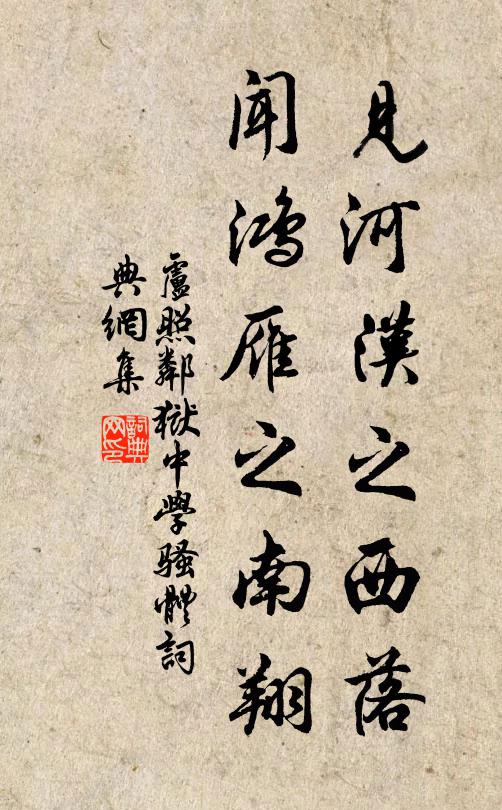 見河漢之西落
聞鴻雁之南翔
盧照鄰獄中學騷體詞
典網集
詞典
网印